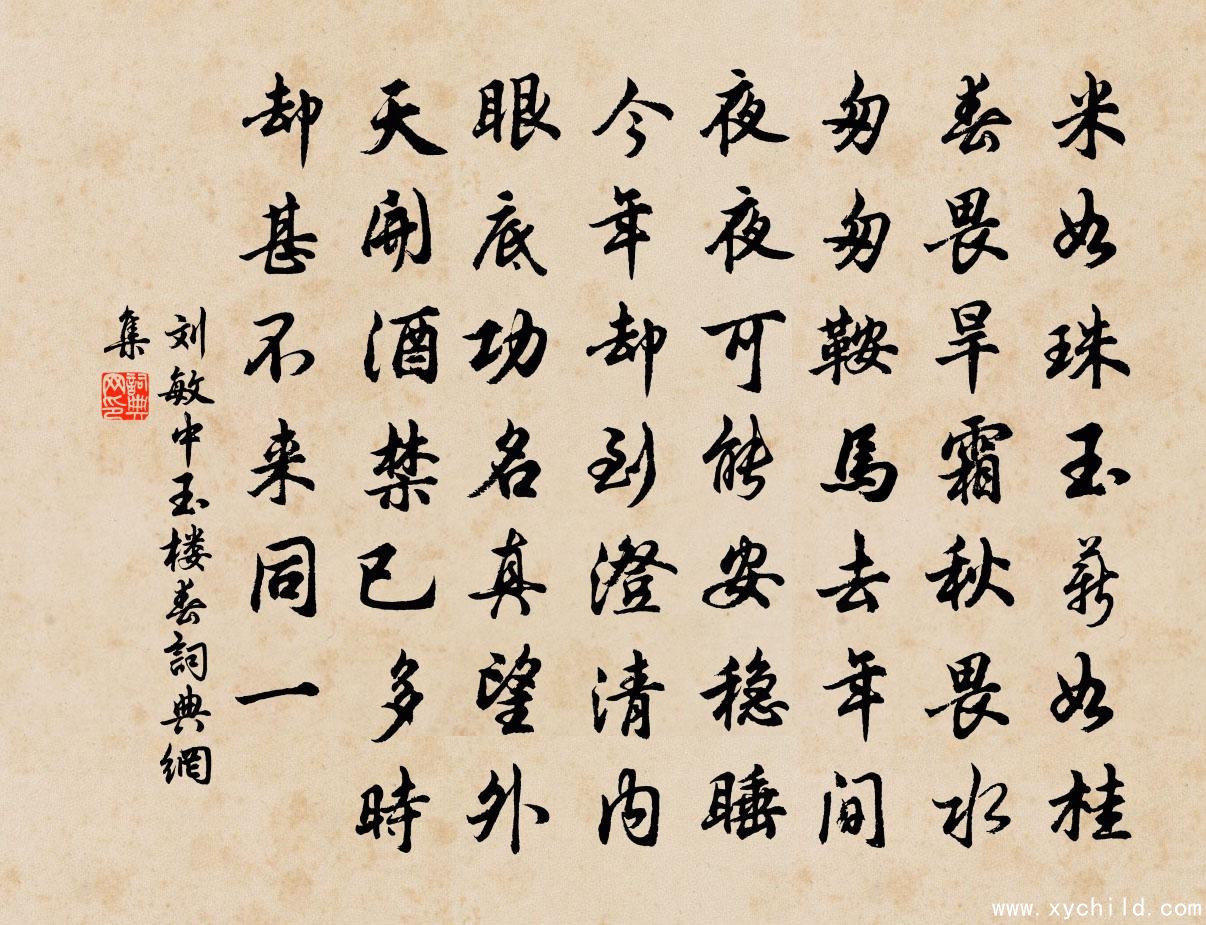 米如珠玉薪如桂
春畏旱霜秋畏水
匆匆鞍馬去年间
夜夜可能安稳睡
今年却到澄清内
眼底功名真望外
天開酒禁已多時
却甚不来同一
刘敏中玉楼春詞典網
集
詞典网印
www.xychild.com